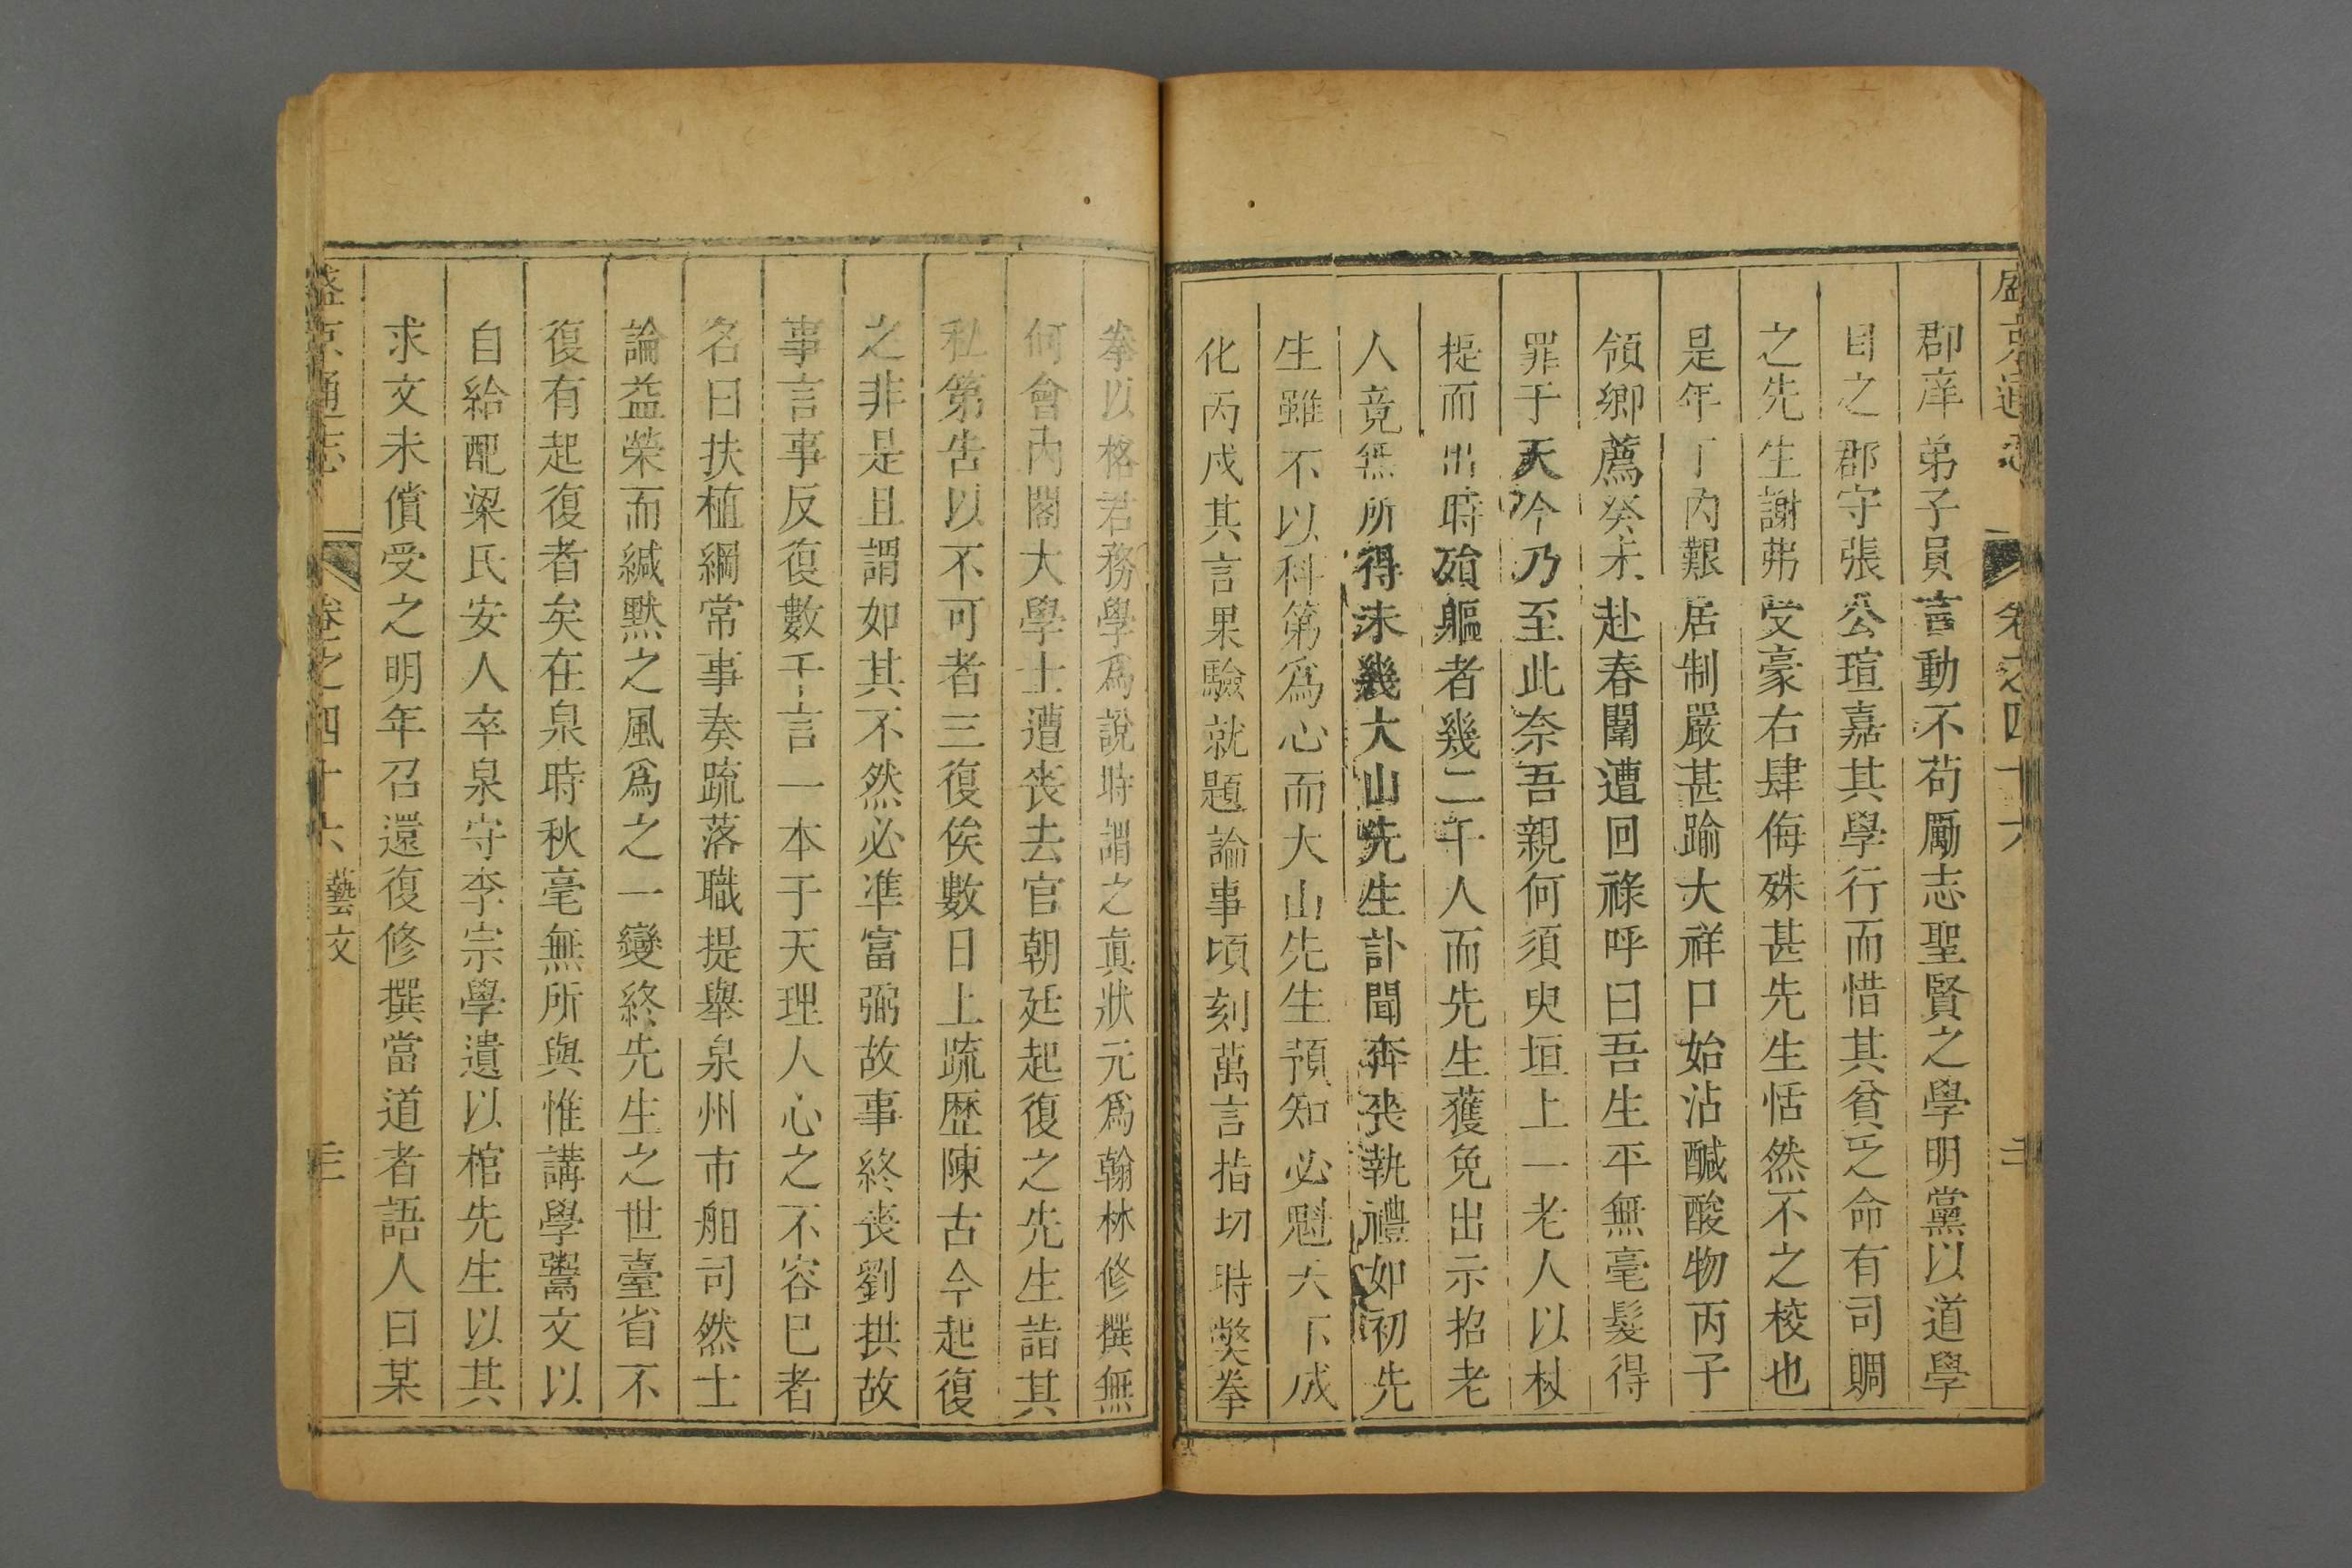 盛京通志 卷之四十六
郡庠弟子員言動不茍勵志聖賢之學明黨以道學
目之郡守張公瑄嘉其學行而惜其貧乏命有司賙
之先生謝弗受豪右肆侮殊甚先生恬然不之校也
是年丁內艱居制嚴甚踰大祥日始沾醎酸物丙子
領鄉薦癸未赴春闈遭回祿呼曰吾生平無毫髮得
罪于天今乃至此奈吾親何須臾垣上一老人以杖
提而出時殞軀者幾二千人而先生獲免出示招老
人竟無所得未幾大山先生訃聞奔喪執禮如初先
生雖不以科第為心而大山先生預知必魁天下成
化丙戌其言果驗就題論事頃刻萬言指切時獘拳
拳以格君務學爲說時謂之眞狀元爲翰林修撰無
何會內閣大學士遭喪去官朝廷起復之先生詣其
私第告以不可者三復俟數日上疏歷陳古今起復
之非是且謂如其不然必凖富弼故事終喪劉拱故
事言事反復數千言一本于天理人心之不容已者
名曰扶植綱常事奏疏落職提舉泉州市舶司然士
論益榮而緘默之風爲之一變終先生之世臺省不
復有起復者矣在泉時秋毫無所與惟講學鬻文以
自給配梁氏安人卒泉守李宗學遺以棺先生以其
求文未償受之明年召還復修撰當道者語人曰某
盛京通志 卷之四十六 藝文